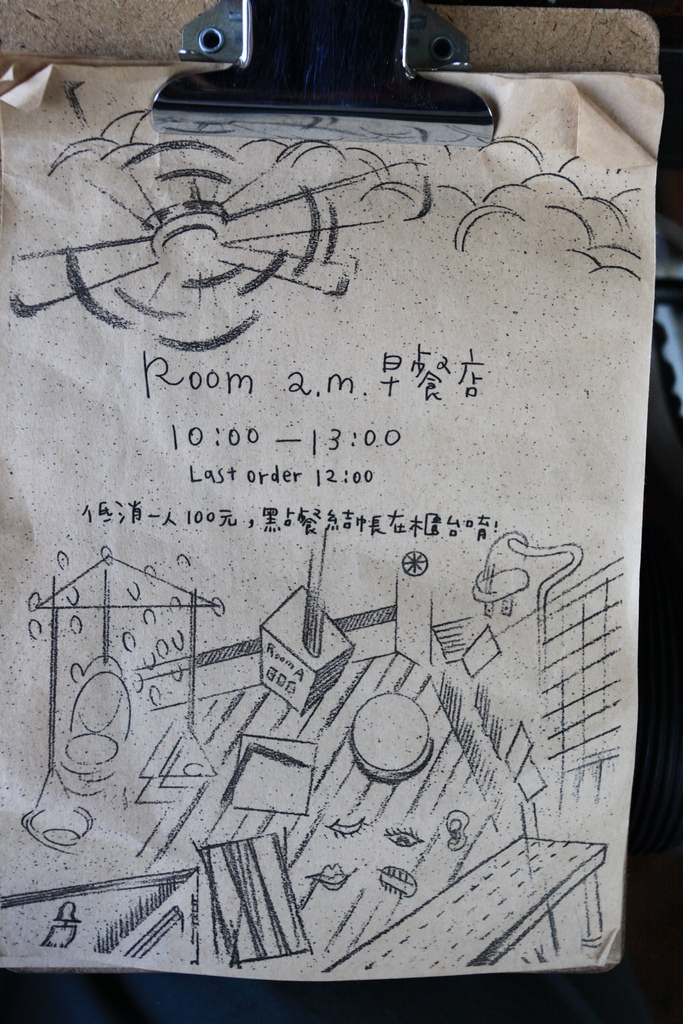 Room a.m.早餐店
10:00 — 13:00
Last order 12:00
低消一人100元，點餐結帳在櫃台唷!
Room A